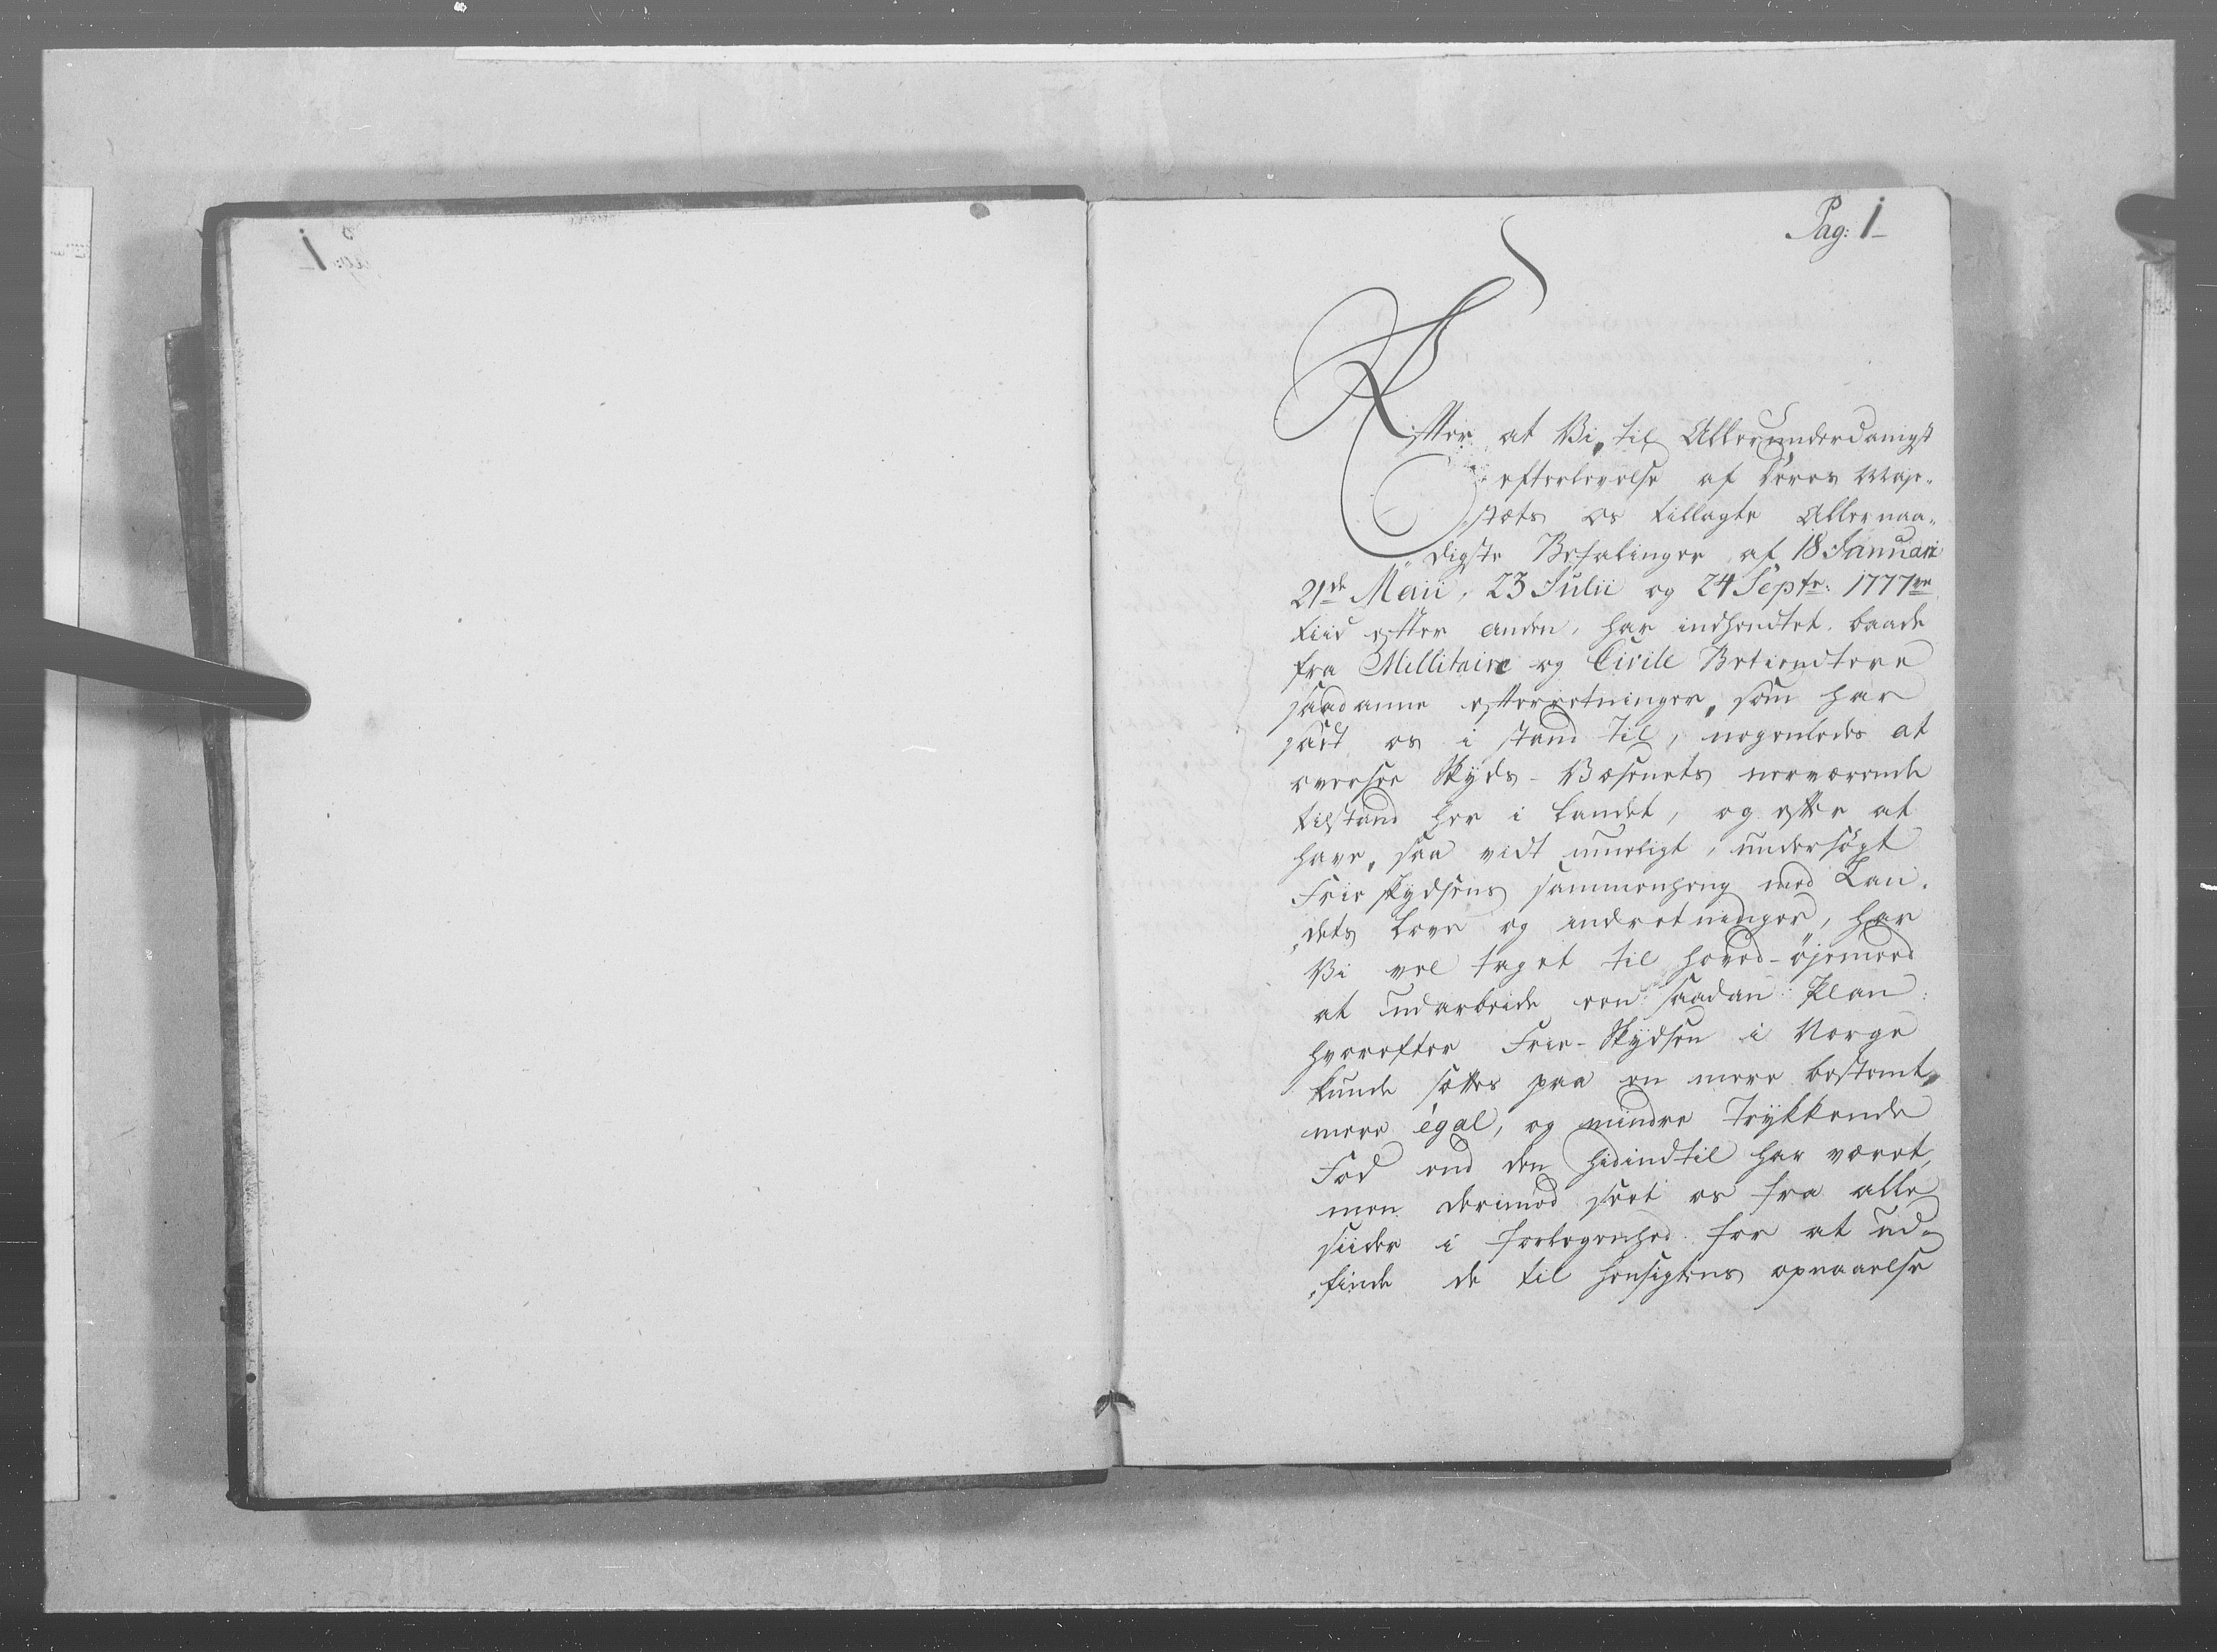 Pag: 1
Efter at Vi, til Allerunderdanigst
efterlevelse af Deres Maje„
„stæts os tillagte Allernaa„
„digste Befalinger af 18 Januari
21de Maii, 23 Julii og 24 Septr: 1777ve
tiid efter anden, har indhendtet, baade
fra Millitaire og Civile Betiendtere
saadanne efterretninger, som har
sadt os i stand til, nogenledes at
oversee Skyds-Væsenets nerværende
tilstand her i Landet, og efter at
have, saa vidt mueligt, undersøgt
Frie skydsens sammenheng med Lan„
„dets Love og indretninger, har
Vi vel taget til hoved-øjemeed
at udarbeide een saadan Plan
hvorefter Frie-Skydsen i Norge
kunde sættes paa en mere bestemt,
mere égal, og mindre Trykkende
Fod end den hidindtil har været,
men derimod seet os fra alle
siider i forlegenhed for at ud„
„finde de til hensigtens opnaaelse